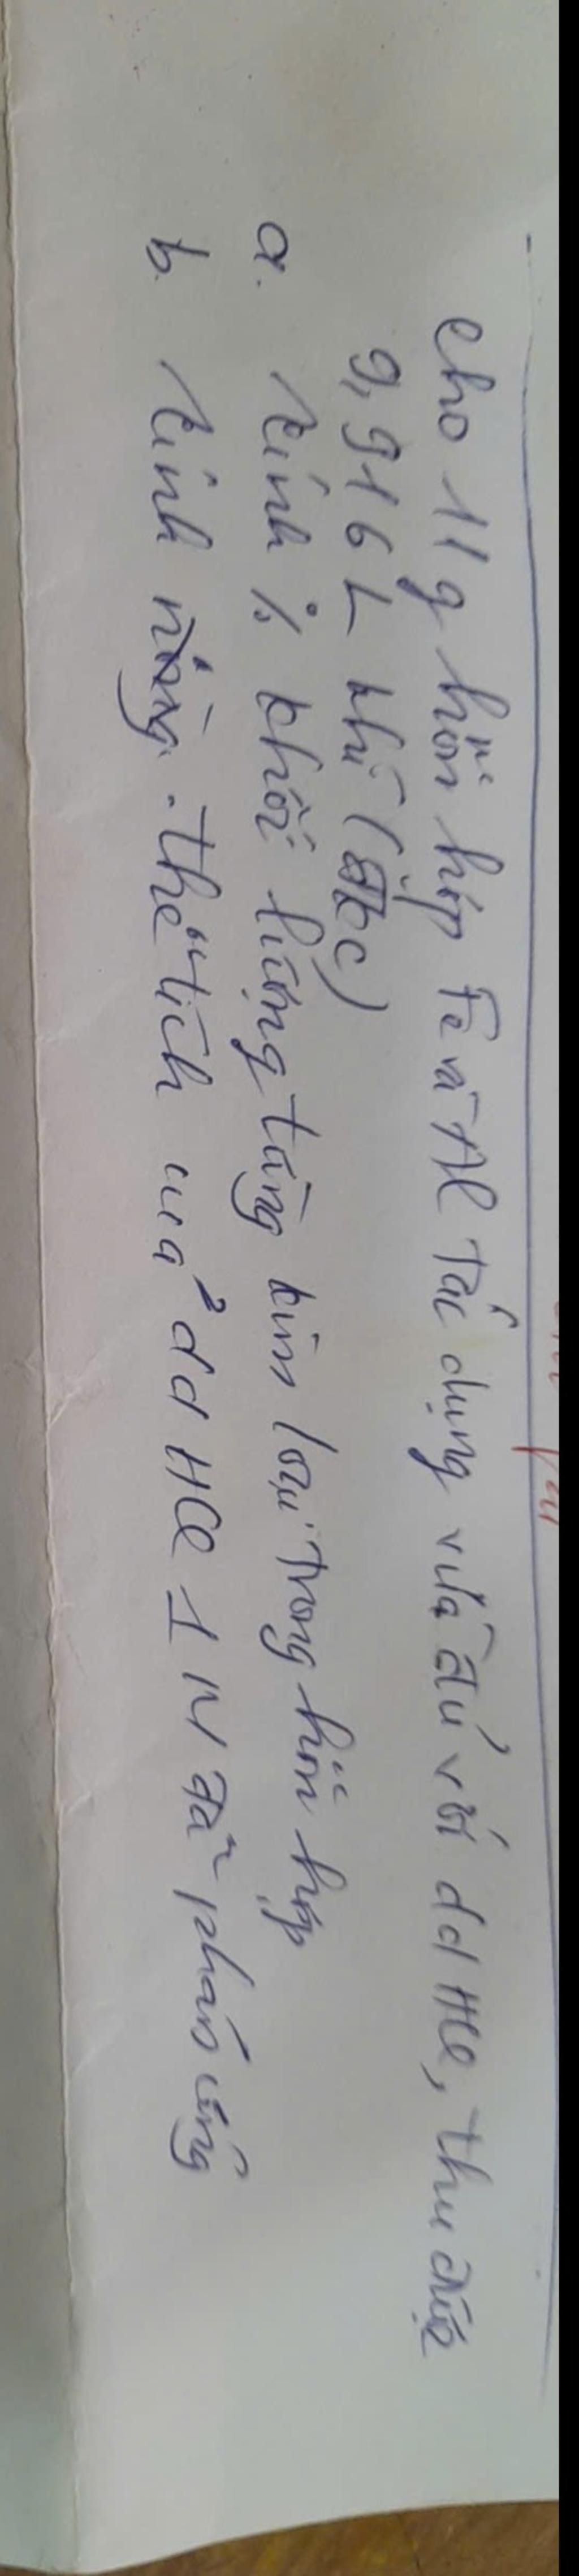 cho 11 g hỗn hợp Fe và Al tác dụng vừa đủ với dd HCl, thu được
9,916 L khí (đkc)
a. Tính % khối lượng từng kim loại trong hỗn hợp
b. Tính thể tích của dd HCl 1 M đã phản ứng